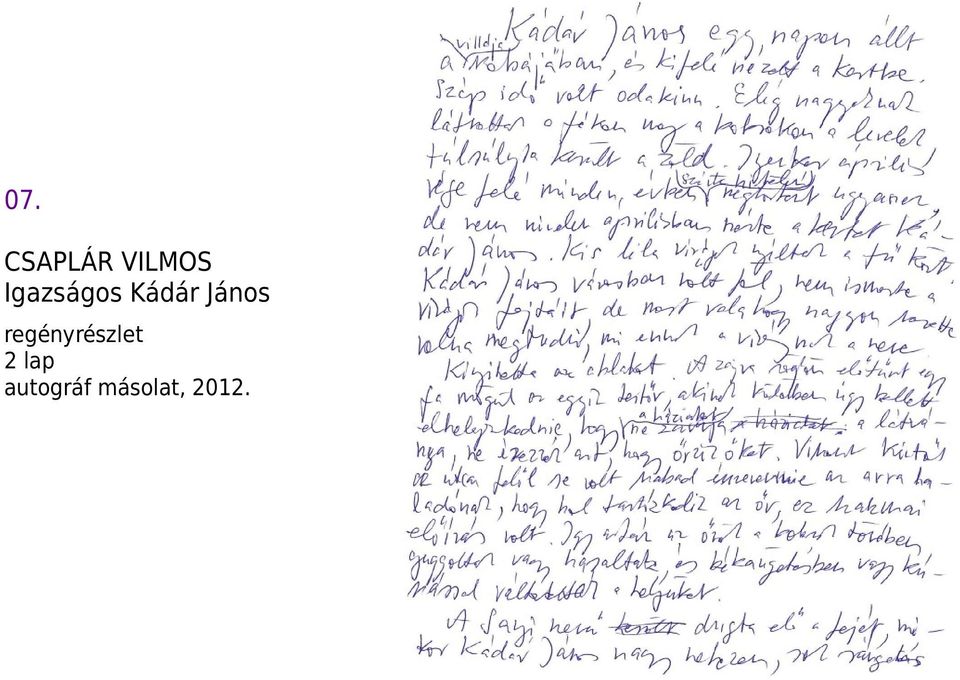 07.
CSAPLÁR VILMOS
Igazságos Kádár János
regényrészlet
2 lap
autográf másolat, 2012.
Kádár János egy napon állt
villája
a szobájában, és kifelé nézett a kertbe.
Szép idő volt odakinn. Elég nagyoknak
látszottak a fákon meg a bokrokon a levelek
túlsúlyba került a zöld. Ilyenkor április
vége felé minden évben ugyanez,
de nem minden áprilisban nézte a kertet Ká-
dár János. Kis lila virágok nyíltak a fű közt.
Kádár János városban nőtt fel, nem ismerte a
virágok fajtáit de most valahogy nagyon szerette
volna megtudni, mi ennek a virágnak a neve.
Kinyitotta az ablakot. A zajra rögtön előtűnt egy
fa mögül az egyik testőr, akinek különben úgy kellett
elhelyezkednie, hogy ne zavarja a látvá-
a háziakat
nya, ne érezzék azt, hogy őrzik őket. Viszont
az utca felől se volt szabad észrevennie az arra ha-
ladónak, hogy hol tartózkodik az őr, ez szakmai
előírás volt. Így aztán az őrök a bokrok tövében
guggoltak vagy hasaltak, és békaügetésben vagy kú-
szással változtattak a helyüket.
A Sanyi nevű dugta elő a fejét, mi-
kor Kádár János nagy nehezen, sok